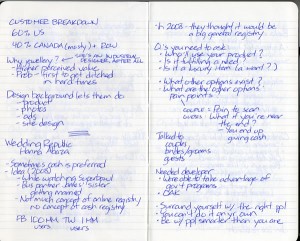 CUSTOMER BREAKDOWN
60% US
40% CANADA (mostly) + ROW
Why jewellery?
DESIGNER, AFTER ALL
- Higher perceived value
- Prob - first to get ditched
in hard times
Design background lets them do
- product
- photos
- ads
- site design
Wedding Republic
Hana Abaza
- Sometimes cash is preferred
- Idea (2008)
- while watching Superbowl
- Bus partner Dales' sister
getting married
- Not much concept of online registry
- no concept of cash registry
FB 100 MM TW 1 MM
users users
- In 2008 - they thought it would be
a big general registry
Q's you need to ask:
- Why I use your product?
- Is it fulfilling a need?
- Is it a luxury item (a want?)
- What other options exist?
- What are the other options'
pain points
COUPLE = Pain to scan
WORSE = What if you're near
the end?
- You end up
giving cash
Talked to
couples
brides/grooms
guests
Needed developer
- Were able to take advantage of
gov't programs
- OAK
- Surround yourself w/ the right ppl
- You can't do it on your own
- Be w/ ppl smarter than you are